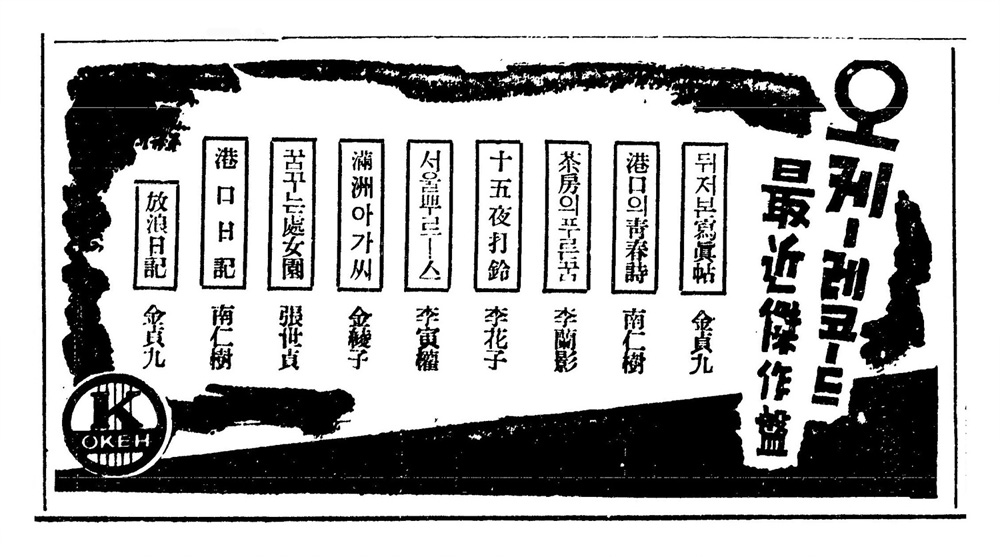 오케ー레코ー드
最近傑作盤
뒤저본寫眞帖
金貞九
港口의靑春詩
南仁樹
茶房의푸른꿈
李蘭影
十五夜打鈴
李花子
서울뿌르ー스
李寅權
滿洲아가씨
金綾子
꿈꾸는處女園
張世貞
港口日記
南仁樹
放浪日記
金貞九
K
OKEH